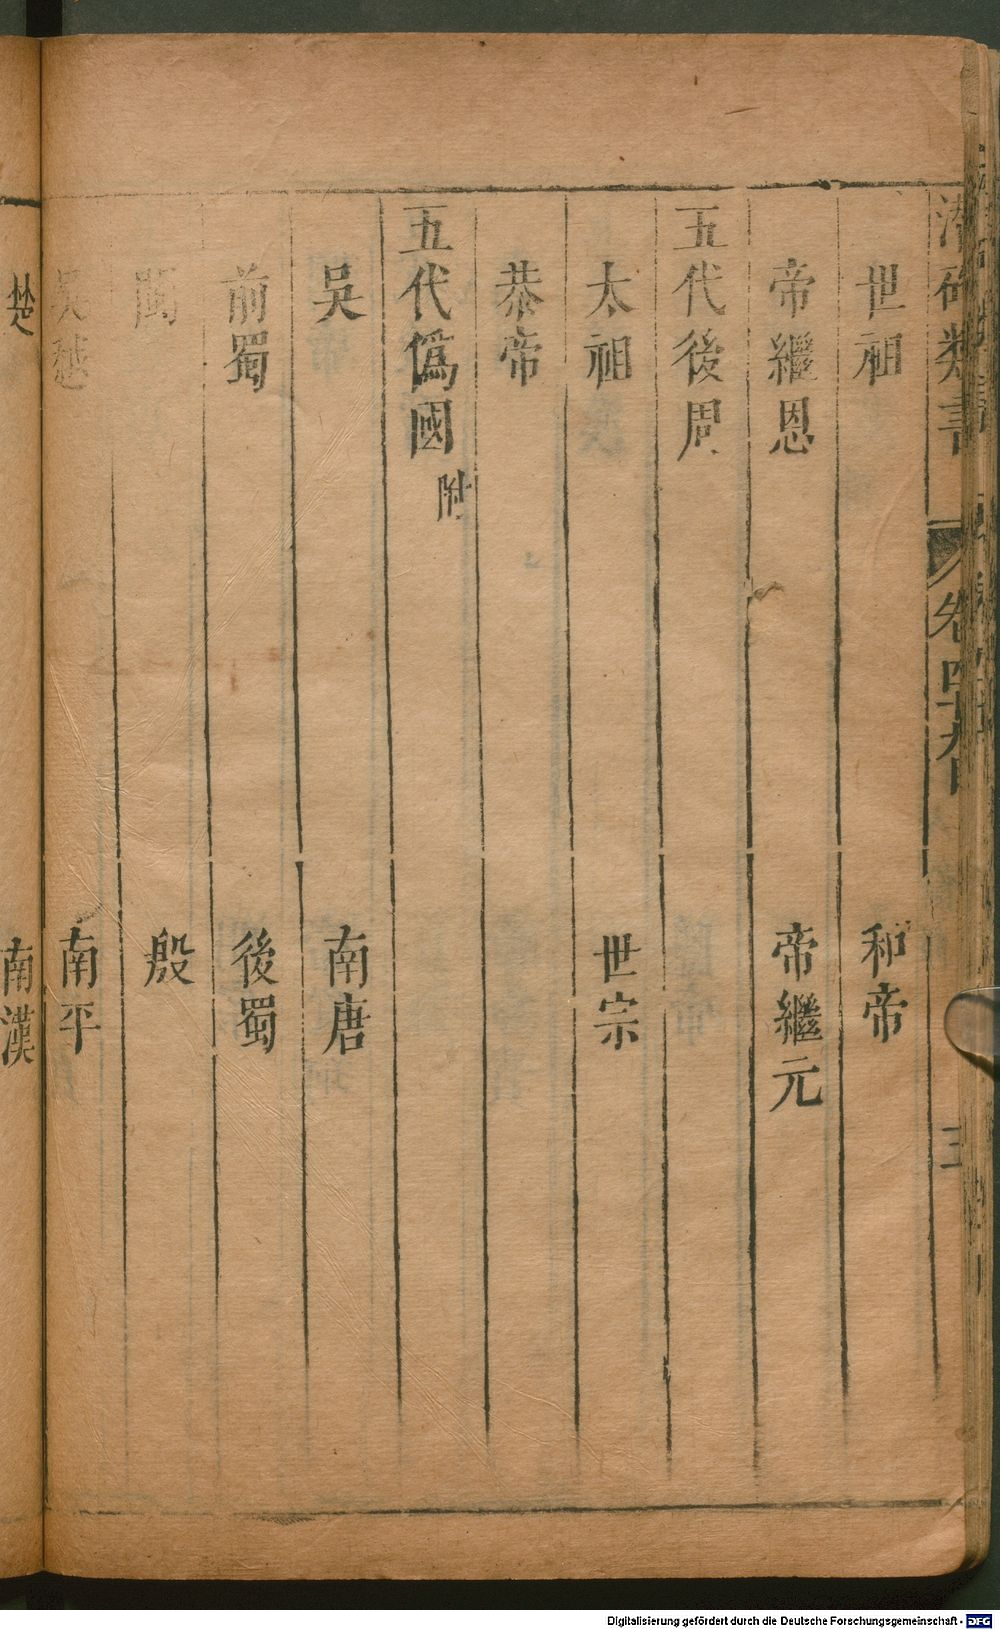 潛確類書 卷四十九目 三
世祖 和帝
帝繼恩 帝繼元
五代後周
太祖 世宗
恭帝
五代僞國附
吳 南唐
前蜀 後蜀
閩 殷
吳越 南平
楚 南漢
Digitalisierung gefördert durch die Deutsche Forschungsgemeinschaft - DFG